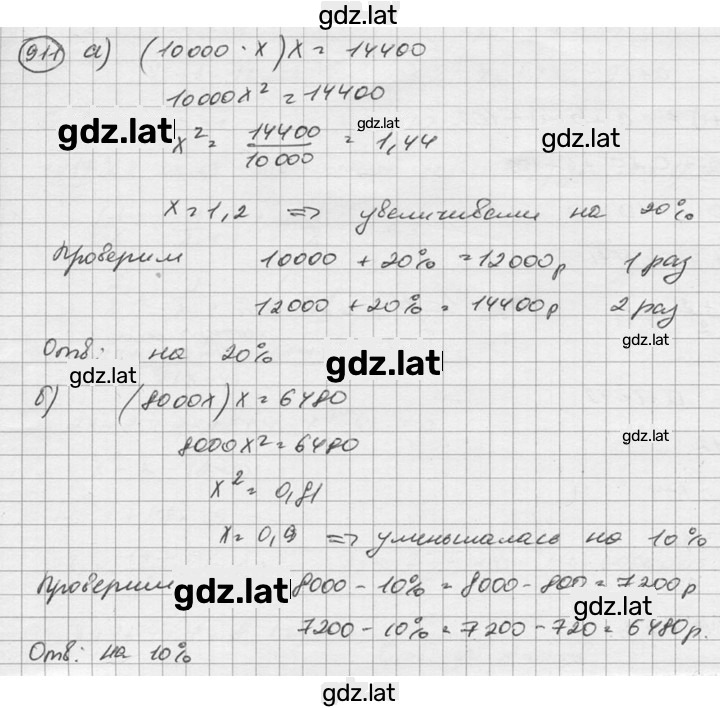 gdz.lat
911 а) (10000 · x)x = 14400
10000x² = 14400
gdz.lat x² = 14400/10000 = 1,44 gdz.lat gdz.lat
x = 1,2 => увеличивали на 20%
Проверим 10000 + 20% = 12000р 1 раз
12000 + 20% = 14400р 2 раз
gdz.lat
Отв: на 20% gdz.lat
gdz.lat
б) (8000x)x = 6480
8000x² = 6480 gdz.lat
x² = 0,81
x = 0,9 => уменьшалась на 10%
Проверим gdz.lat 8000 - 10% = 8000 - 800 = 7200р
gdz.lat
7200 - 10% = 7200 - 720 = 6480р.
Отв: на 10%
gdz.lat